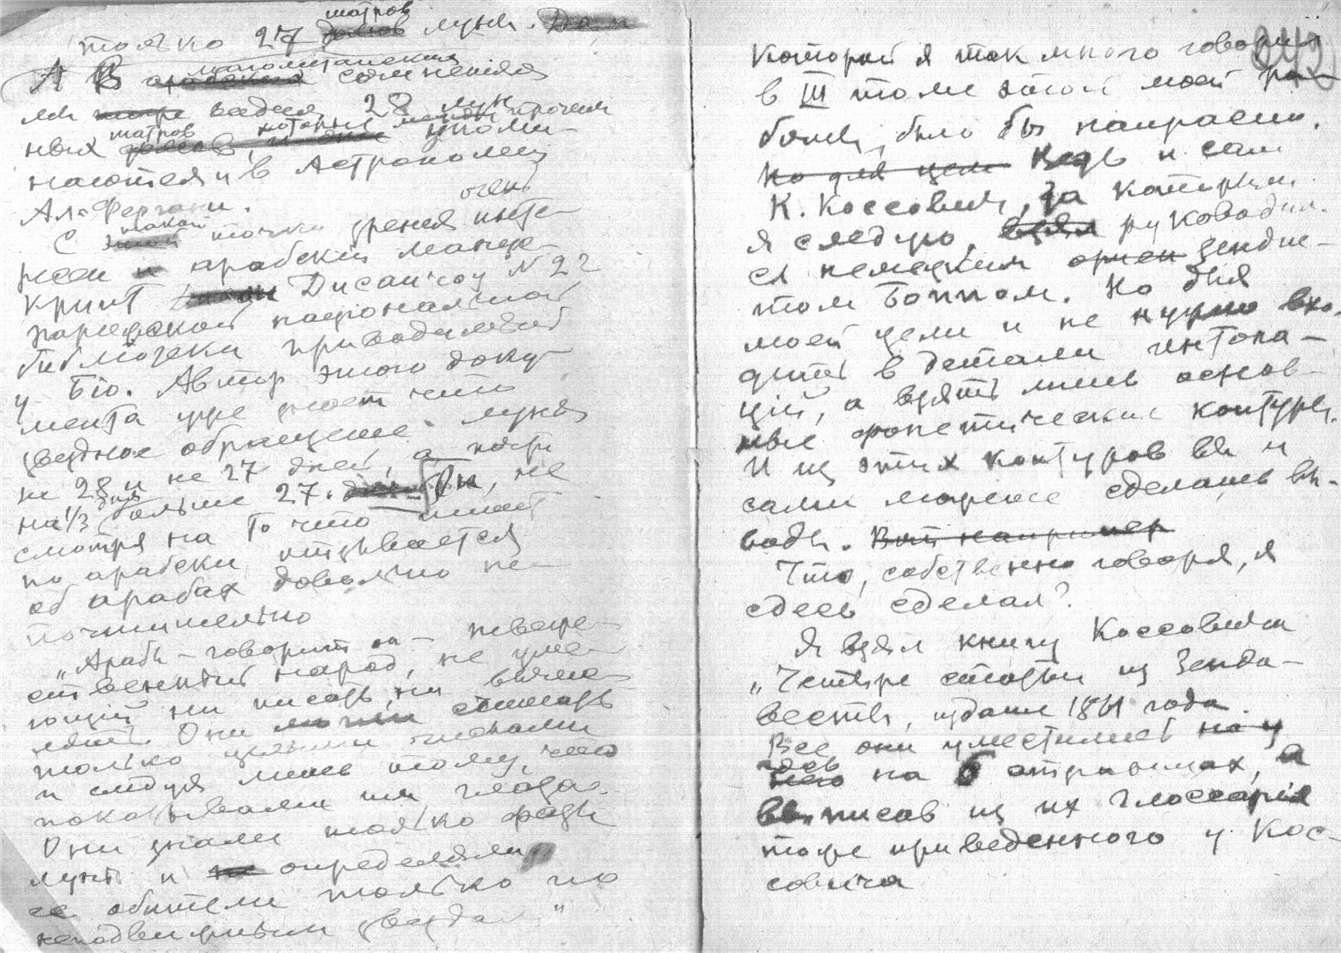 только 27 шатров луны. Дом
А В арабских магометанских сочинениях
мы вадим 28 лун
ных шатров, которые между прочим
упоми-
наются и в Астрономии
Аль-Фергани.
С такой точки зрения очень инте-
ресен и арабский манус-
крипт № 22
парижской национальной
библіотеки приводимый
у Біо. Автор этого доку-
мента уже знает что
звездное обращение луны
не 28 и не 27 дней, а почти
на 1/3 дня больше 27. Он, не
смотря на то что пишет
по арабски, отзывается
об арабах довольно не-
почтительно
„Арабы – говорит он – невеже-
ственный народ, не уме-
ющий ни писать, ни вычис-
лять. Они могли считать
только целыми числами
и следуя лишь тому, что
показывали им глаза.
Они знали только фазы
луны и не определяли
ее обители только по
неподвижным звездам"
которой я так много говорил
242
в III томе этой моей ра-
боты, было бы напрасно.
Но для цели Ведь и сам
К. Коссович, за которым
я следую, руководил-
ся немецким зендис-
том Боппом. Но для
моей цели и не нужно вхо-
дить в детали интона-
ций, а взять лишь основ-
ные фонетические контуры.
И из этих контуров вы и
сами можете сделать вы-
воды. Вот например
Что, собственно говоря, я
здесь сделал?
Я взял книгу Коссовича
„Четыре статьи из Зенда-
весты, издания 1861 года.
Все они уместились
здесь на 6 страницах, а
выписав из их глоссария
тоже приведенного у Кос-
совича